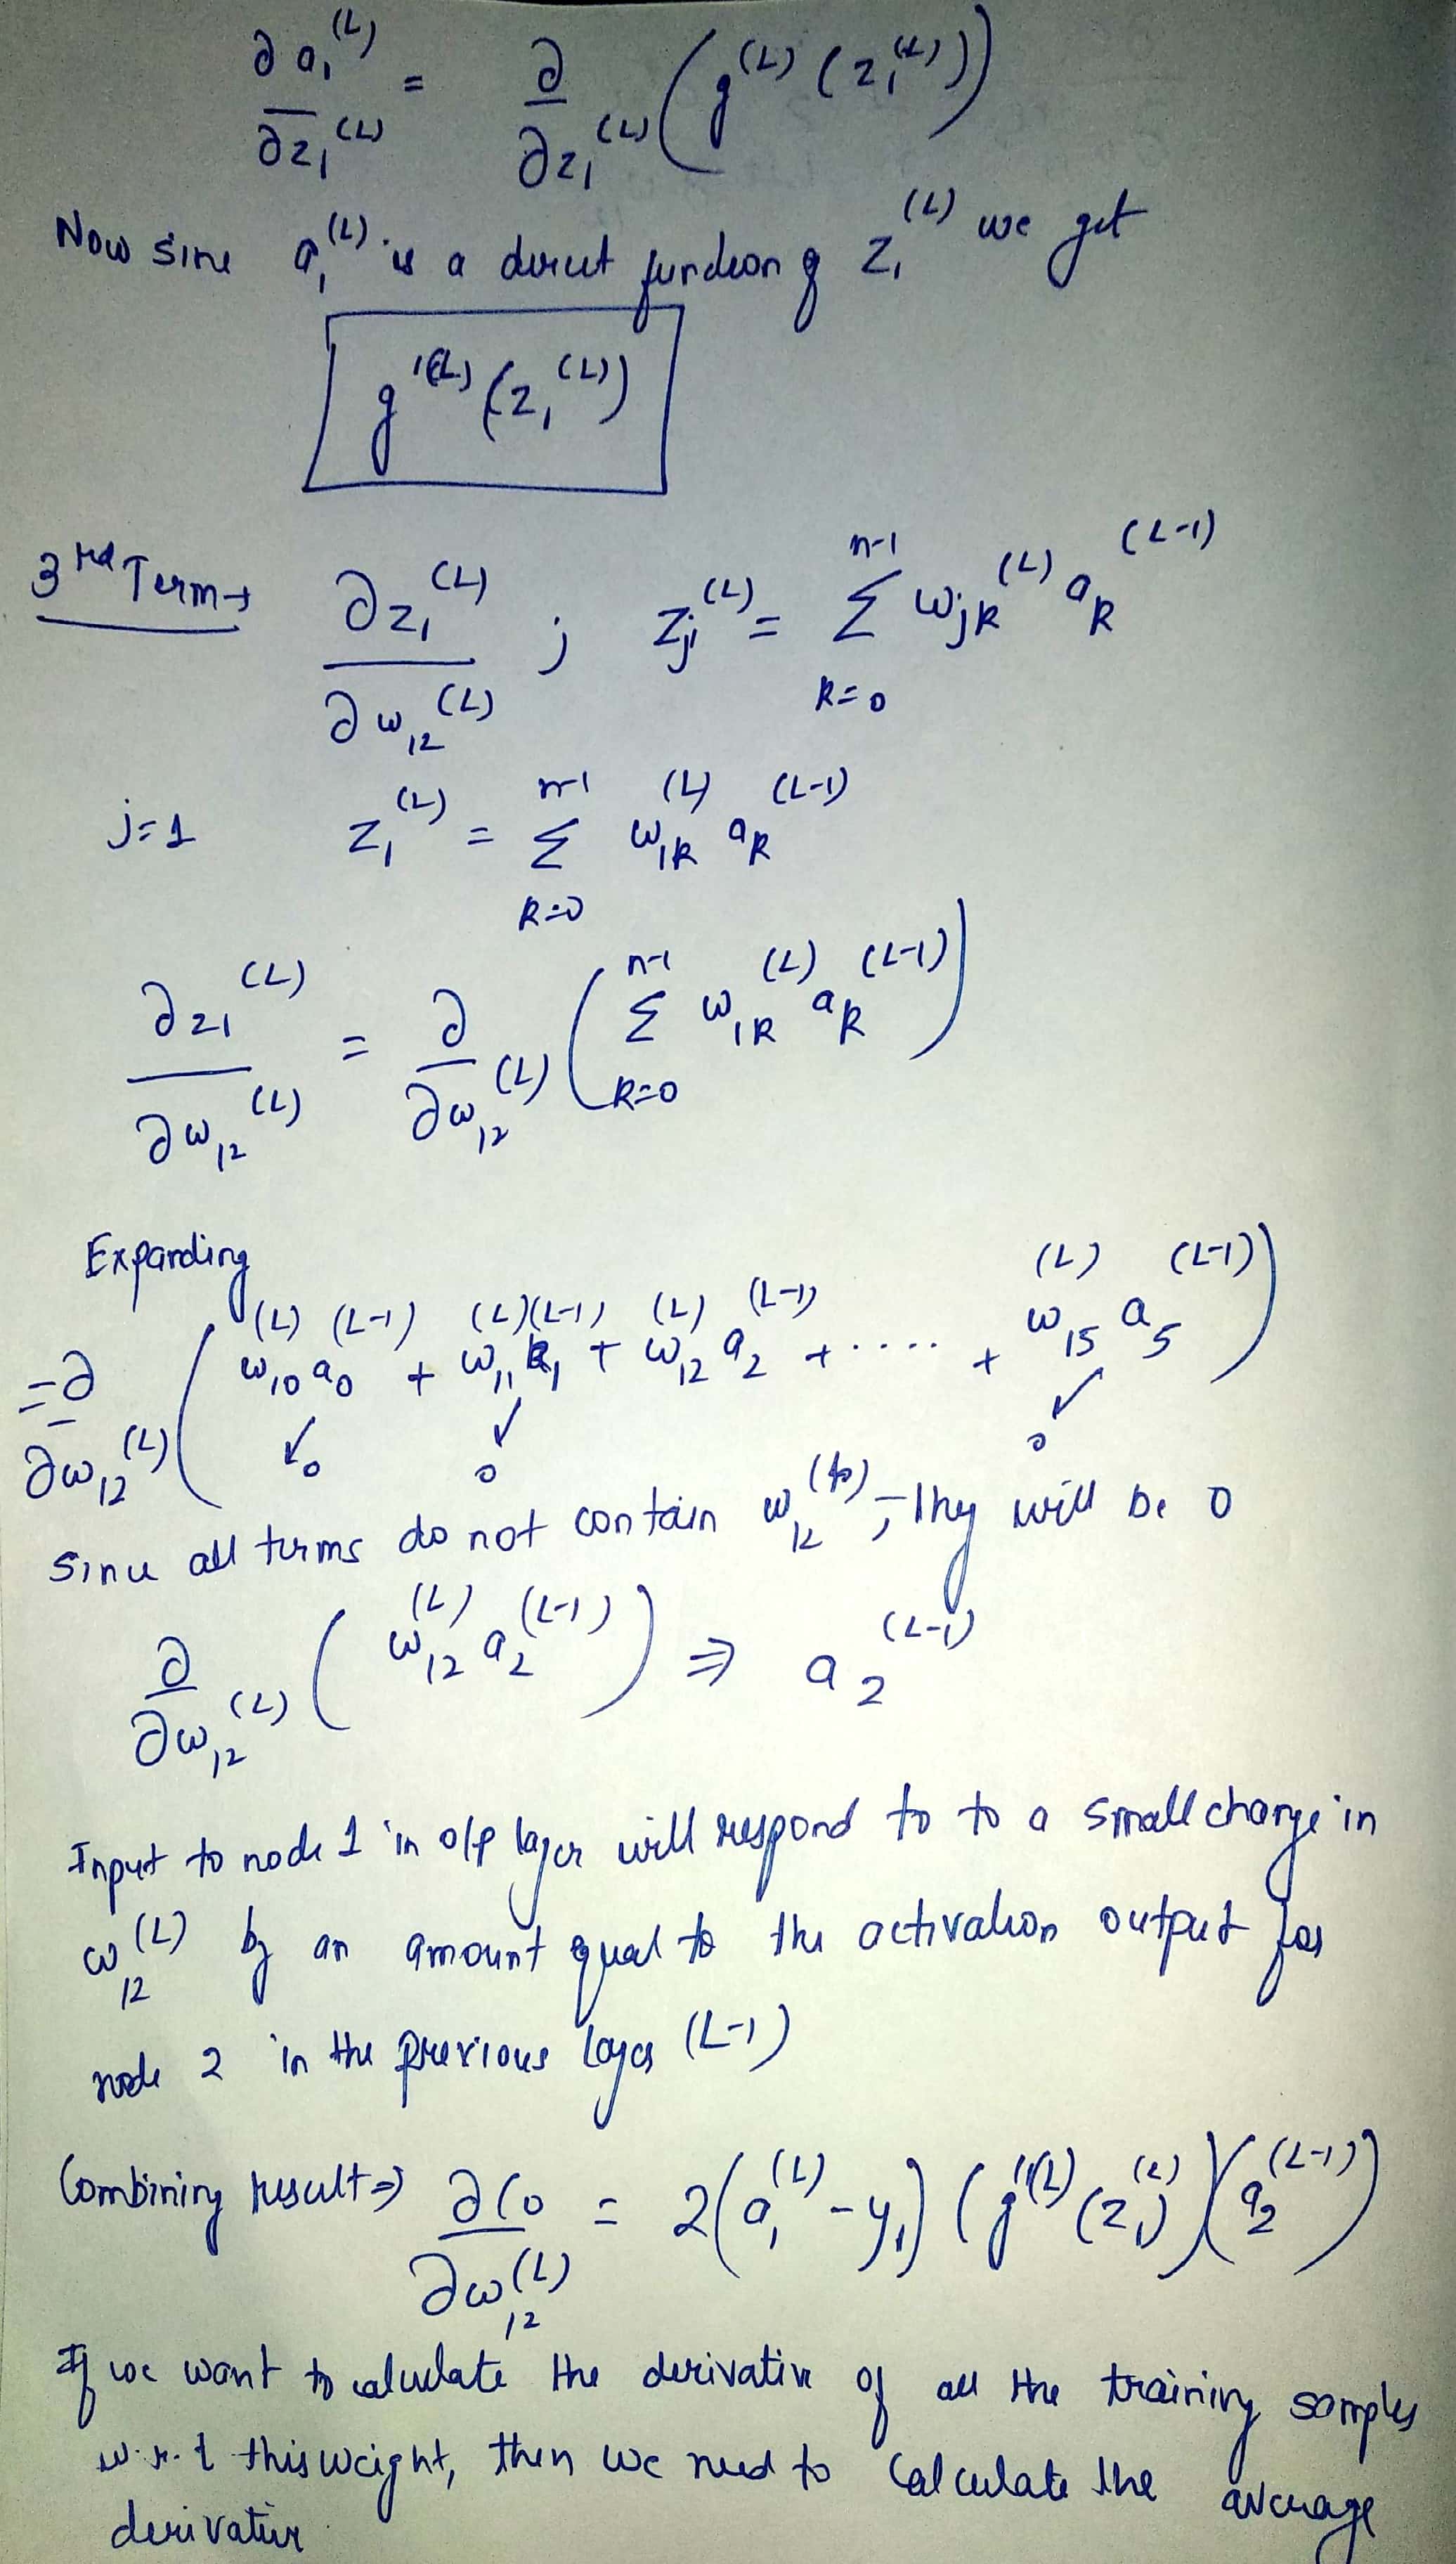 ∂a₁^(L) / ∂z₁^(L) = ∂/∂z₁^(L) (g^(L) (z₁^(L)))
Now sine a₁^(L) is a direct function of z₁^(L) we get
g'^(L) (z₁^(L))
3rd Term → ∂z₁^(L) / ∂w₁₂^(L) ; z_j^(L) = Σ_{k=0}^{n-1} w_jk^(L) a_k^(L-1)
j=1 z₁^(L) = Σ_{k=0}^{n-1} w₁k^(L) a_k^(L-1)
∂z₁^(L) / ∂w₁₂^(L) = ∂/∂w₁₂^(L) (Σ_{k=0}^{n-1} w₁k^(L) a_k^(L-1))
Expanding
= ∂/∂w₁₂^(L) (w₁₀^(L) a₀^(L-1) + w₁₁^(L) a₁^(L-1) + w₁₂^(L) a₂^(L-1) + ..... + w₁₅^(L) a₅^(L-1))
↙0 ↙0 ↙0
Since all terms do not contain w₁₂^(L), they will be 0
∂/∂w₁₂^(L) (w₁₂^(L) a₂^(L-1)) ⇒ a₂^(L-1)
Input to node 1 in o/p layer will respond to to a small change in
w₁₂^(L) by an amount equal to the activation output for
node 2 in the previous layer (L-1)
Combining result ⇒ ∂C₀ / ∂w₁₂^(L) = 2(a₁^(L) - y₁) (g'^(L) (z₁^(L))) (a₂^(L-1))
If we want to calculate the derivative of all the training samples
w.r.t this weight, then we need to calculate the average
derivative